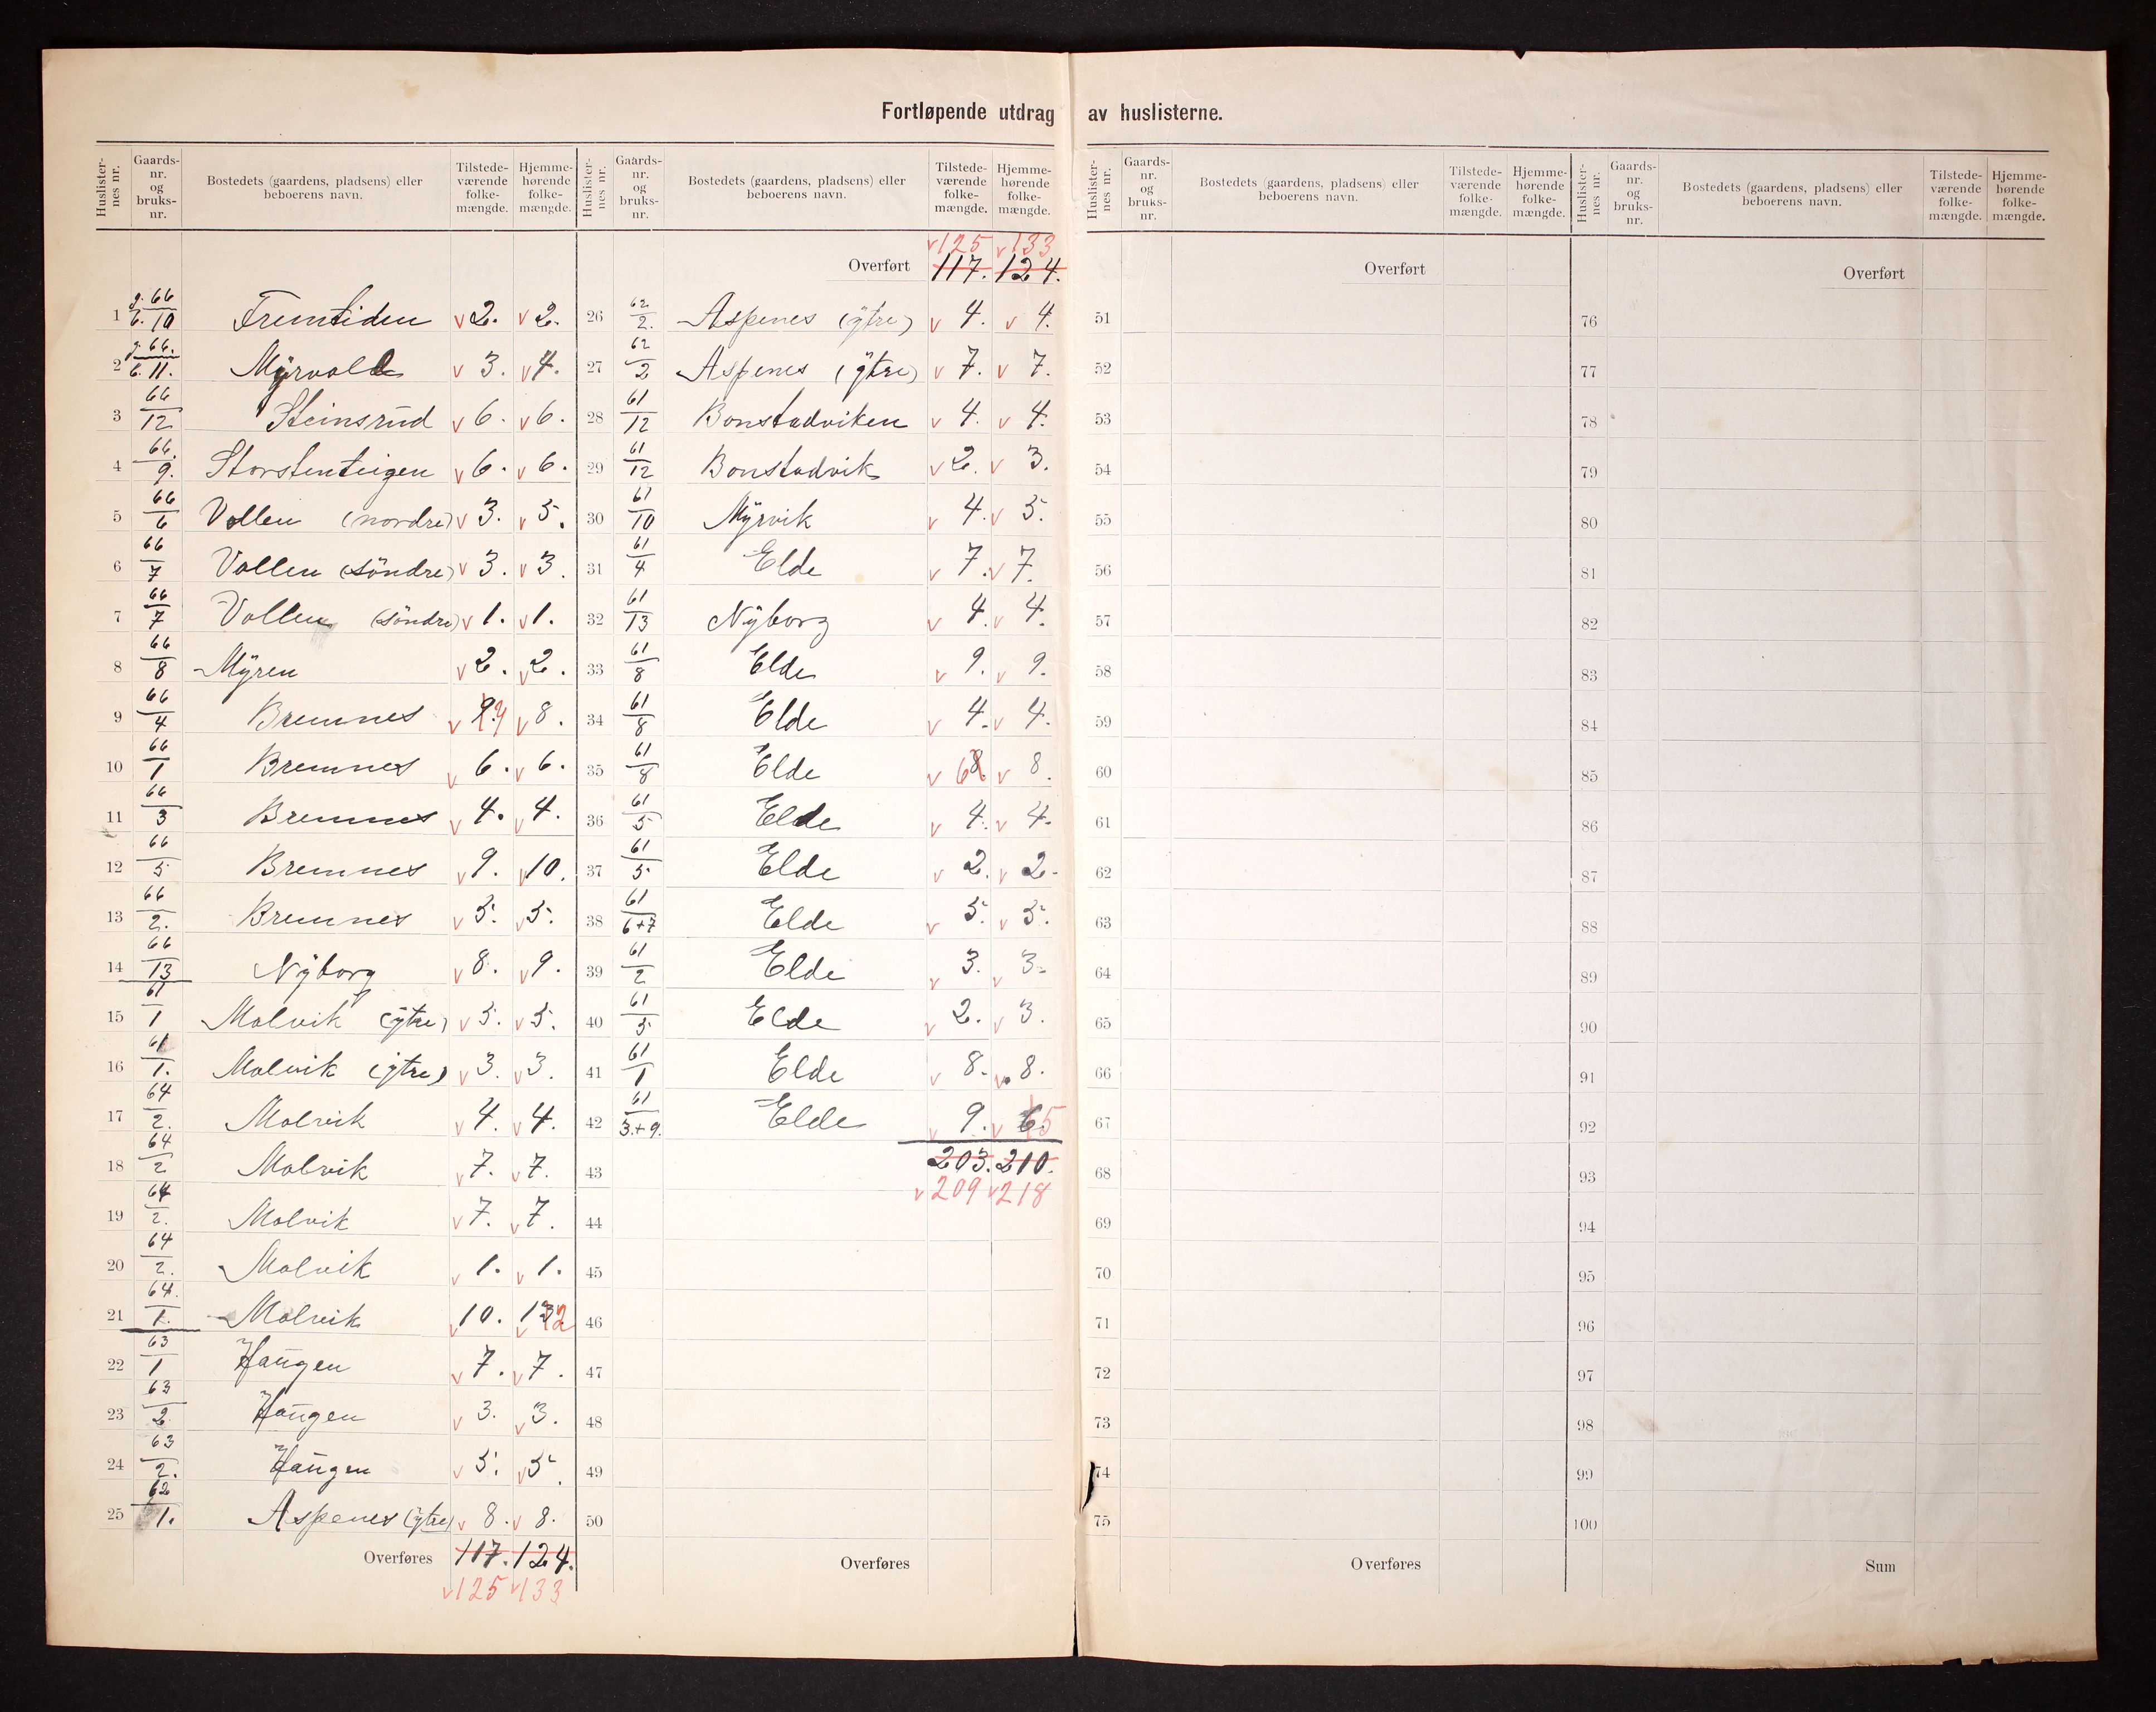 Fortløpende utdrag av huslisterne.
Huslister-nes nr. Gaards-nr. og bruks-nr. Bostedets (gaardens, pladsens) eller beboerens navn. Tilstede-værende folke-mængde. Hjemme-hørende folke-mængde.
1 g. 66 b. 10 Fremtiden v 2. v 2.
2 g. 66. b. 11. Mÿrvold v 3. v 4.
3 66/12 Steinsrud v 6. v 6.
4 66./9. Storstenteigen v 6. v 6.
5 66/6 Vollen (nordre) v 3. v 5.
6 66/7 Vollen (söndre) v 3. v 3.
7 66/7 Vollen (söndre) v 1. v 1.
8 66/8 Mÿren v 2. v 2.
9 66/4 Bremnes v 9 v 8.
10 66/1 Bremnes v 6. v 6.
11 66/3 Bremnes v 4. v 4.
12 66/5 Bremnes v 9. v 10.
13 66/2. Bremnes v 5. v 5.
14 66/13 Nÿborg v 8. v 9.
15 61/1 Malvik (ÿtre) v 5. v 5.
16 61/1. Malvik (ÿtre) v 3. v 3.
17 64/2. Malvik v 4. v 4.
18 64/2 Malvik v 7. v 7.
19 64/2. Malvik v 7. v 7.
20 64/2. Malvik v 1. v 1.
21 64./1. Malvik v 10. v 132
22 63/1 Haugen v 7. v 7.
23 63/2. Haugen v 3. v 3.
24 63/2. Haugen v 5. v 5.
25 62/1. Aspenes (ÿtre) v 8. v 8.
Overføres 117. 124.
v 125 v 133
Huslister-nes nr. Gaards-nr. og bruks-nr. Bostedets (gaardens, pladsens) eller beboerens navn. Tilstede-værende folke-mængde. Hjemme-hørende folke-mængde.
v 125 v 133
Overført 117. 124.
26 62/2. Aspenes (ÿtre) v 4. v 4.
27 62/2 Aspenes (ÿtre) v 7. v 7.
28 61/12 Bonstadviken v 4. v 4.
29 61/12 Bonstadvik v 2. v 3.
30 61/10 Mÿrvik v 4. v 5.
31 61/4 Elde v 7. v 7.
32 61/13 Nÿborg v 4. v 4.
33 61/8 Elde v 9. v 9.
34 61/8 Elde v 4. v 4.
35 61/8 Elde v 68 v 8.
36 61/5 Elde v 4. v 4.
37 61/5. Elde v 2. v 2.
38 61/6+7 Elde v 5. v 5.
39 61/2 Elde v 3. v 3.
40 61/5 Elde v 2. v 3.
41 61/1 Elde v 8. v 8.
42 61/3.+9. Elde v 9. v 65
43 203. 210.
v 209 v 218
44
45
46
47
48
49
50
Overføres
Huslister-nes nr. Gaards-nr. og bruks-nr. Bostedets (gaardens, pladsens) eller beboerens navn. Tilstede-værende folke-mængde. Hjemme-hørende folke-mængde.
Overført
51
52
53
54
55
56
57
58
59
60
61
62
63
64
65
66
67
68
69
70
71
72
73
74
75
Overføres
Huslister-nes nr. Gaards-nr. og bruks-nr. Bostedets (gaardens, pladsens) eller beboerens navn. Tilstede-værende folke-mængde. Hjemme-hørende folke-mængde.
Overført
76
77
78
79
80
81
82
83
84
85
86
87
88
89
90
91
92
93
94
95
96
97
98
99
100
Sum